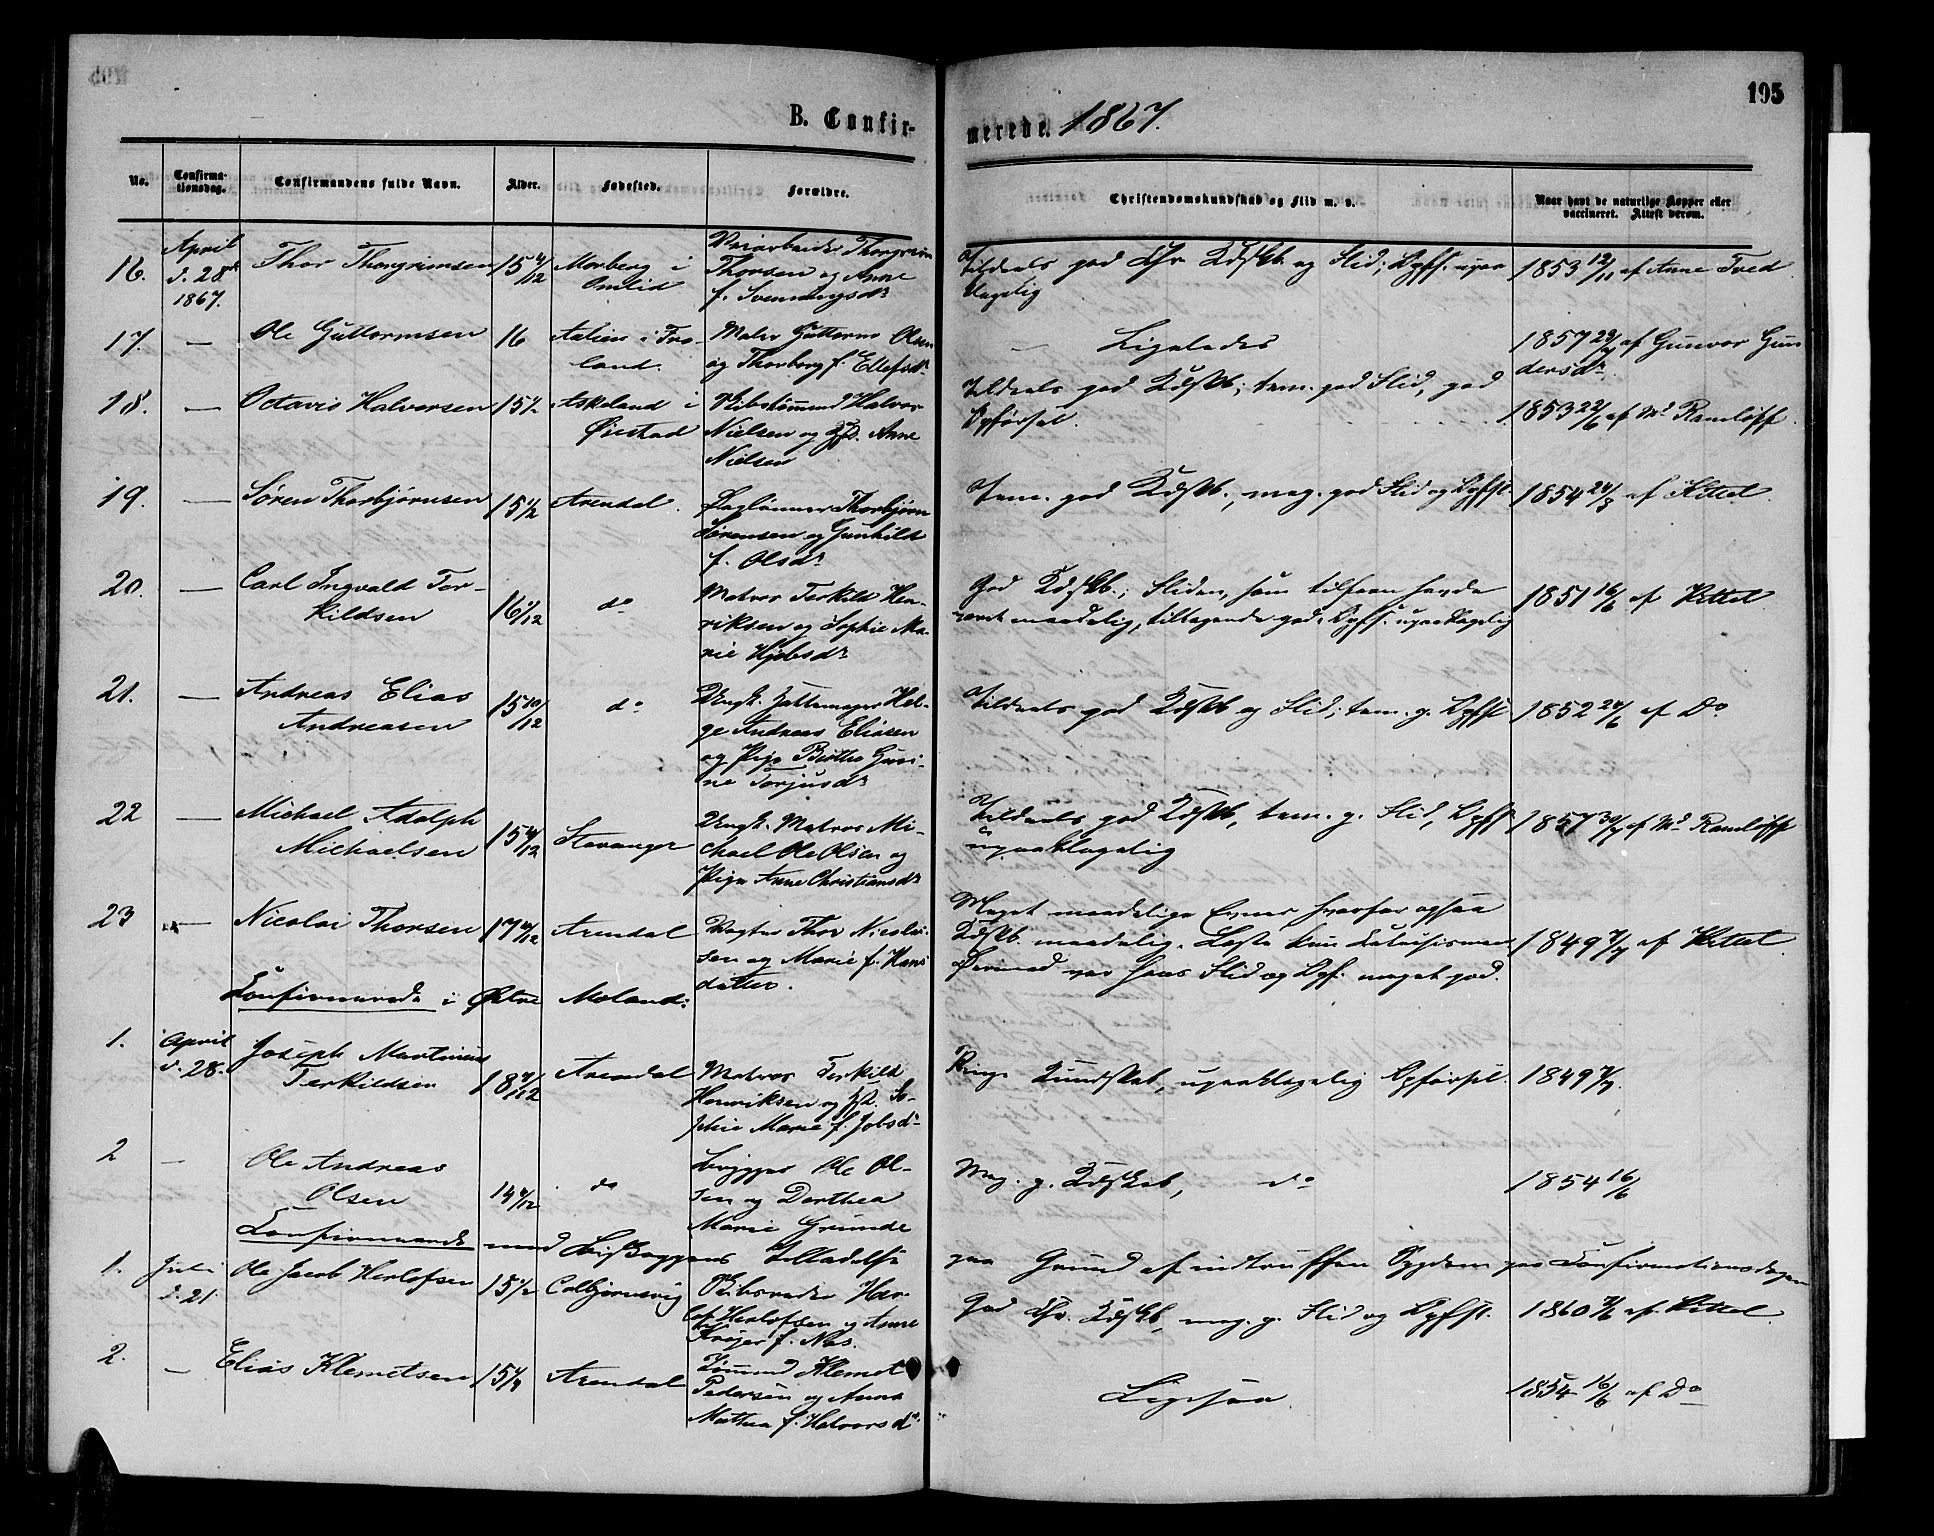 195
B. Confir-
merede. 1867.
No.
Confirma-
tionsdag.
Confirmandens fulde Navn.
Alder.
Fødested.
Forældre.
Christendomskundskab og Flid m. v.
Naar havt de naturlige Kopper eller
vaccineret. Attest derom.
16. April d. 28de 1867. Thor Thorgrimsen 15 Morberg i Omlid
Thorgrim
Thorsen og Anne
f. Svenningsdr
Tildeels god Chr Kdskb. og Flid; Opfs. upaa
klagelig
1853 12/11 af Anne Tved
17. — Ole Guttormsen 16 i Fro-
land.
Guttorm Olsen
og Thorborg f. Ellefsdr
— Ligeledes
1857 af Gunvor Gun
dersdr
18. — Octavis Halvorsen 15½ Askeland i
Øiestad
Halvor
Nielsen og Anne
Nielsen
Tildeels god Kdskb; tem. god Flid, god
Opførsel.
1853 22/6 af Md Ramløff.
19. — Søren Thorbjørnsen 15½ Arendal.
Daglønner Thorbjørn
Sørensen og Gunhild
f. Olsdr
Tem. god Kdskb., meg. god Flid og Opfsl.
1854 24/3 af Kittel.
20. — Carl Ingvald Ter-
kildsen 16 1/12 do
Matros Terkild Hen-
riksen og Sophie Ma-
rie Hjobsdr
God Kdskb.; Fliden, som tilforn havde
været maadelig, tiltagende god. Opfs. upaaklagelig
1851 16/6 af Kittel
21. — Andreas Elias
Andreasen 15 10/12 do
Ungk. Hel-
ge Andreas Eliasen
og Pige Birthe Guri-
ne Torjusdr
Tildeels god Kdskb og Flid; tem. g. Opfsl
1852 24/6 af Do
22 — Michael Adolph
Michaelsen 15 Stavanger
Ungk. Matros Mi-
chael Ole Olsen og
Pige Anne Christiansdr
Tildeels god Kdskb, tem. g. Flid, Opfsl
upaaklagelig
1857 af Md Ramløff
23 — Nicolai Thorsen 17 Arendal
Vægter Thor Nicolai-
sen og Marie f. Hans
datter.
Meget maadelige Evner hvorfor ogsaa
Kdskb. maadelig. Læste kun Katechismen
Derimod var hans Flid og Opf. meget god.
1849 af Kittel
Confirmerede i Østre Moland:
1. April
d. 28. Joseph Martinius
Terkildsen 18 Arendal
Matros Terkild
Henriksen og So-
phie Marie f. Jobsd-
Ringe Kundskab, upaaklagelig Opførsel. 1849
2 — Ole Andreas
Olsen 14 do
Brygger Ole Ol-
sen og Dorthea
Marie Grunde
Meg. g. Kdskab, do 1854 16/6
Confirmerede med Biskoppens Tilladelse paa Grund af indtruffen Sygdom paa Confirmationsdagen
1. Juli
d. 21. Ole Jacob Herlofsen 15½ Colbjørnsvig
Skibsreder Her-
lof Herlofsen og Anne
f. Næs.
God Chr. Kdskb, meg. g. Flid og Opfsl. 1860 af Kittel.
2. — Elias Klemetsen 15¼ Arendal
Tømmermd Klemet
Pedersen og Anna
Mathea f. Halvorsd.
Ligesaa
1854 16/6 af Do